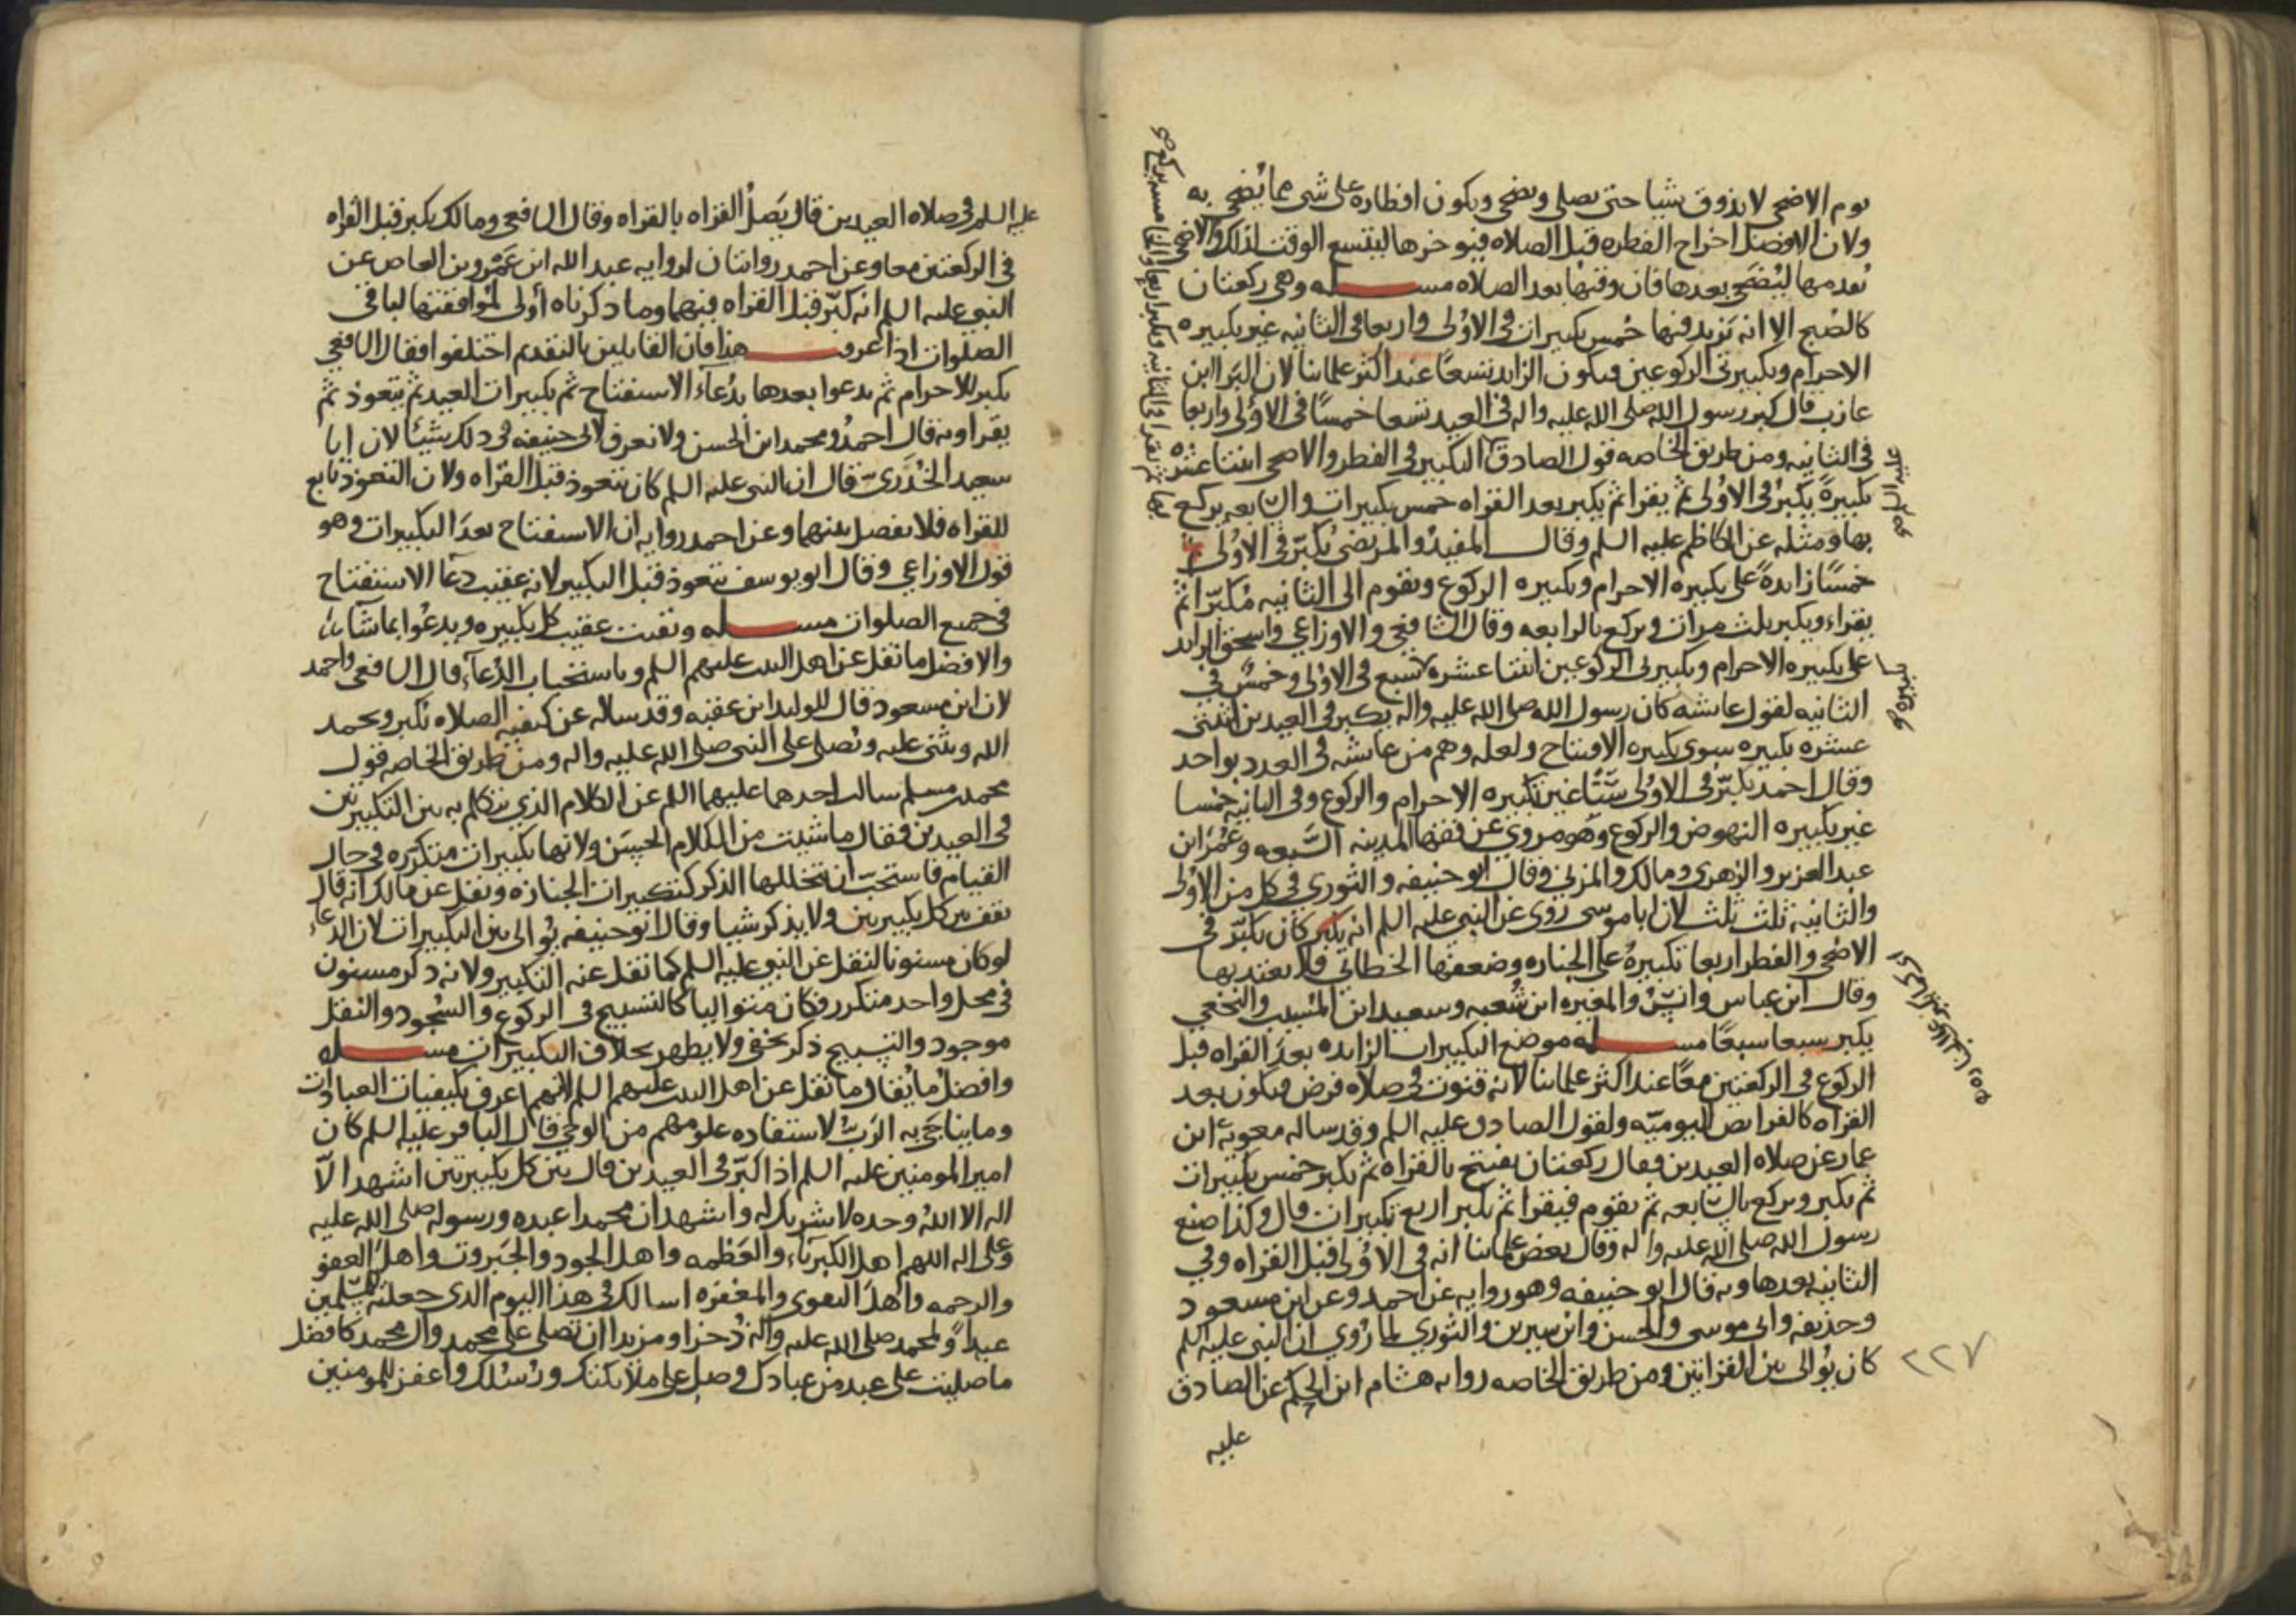 يوم الاضحى لا يذوق شيا حتى يصلى ويضحى ويكون افطاره على شى مما يضحى به
ولان الافضل اخراج الفطره قبل الصلاه فيوخرها ليتسع الوقت لذلك والاضحى
تقدمها ليضحى بعدها فان وقتها بعد الصلاه مســـله وهى ركعتان
كالصبح الا انه تزيد فيها خمس تكبيرات فى الاولى واربعا فى الثانيه غير تكبيره
الاحرام وتكبيرتى الركوعين فيكون الزايد تسعًا عند اكثر علماينا لان البرا ابن
عازب قال كبر رسول الله صلى الله عليه واله فى العيد تسعا خمسًا فى الاولى واربعا
فى الثانيه ومن طريق الخاصه قول الصادق التكبير فى الفطر والاضحى اثنتا عشره
تكبيرةً يكبر فى الاولى ثم يقرا ثم يكبر بعد القراه خمس تكبيرات والسابعه يركع
بها ومثله عن الكاظم عليه السلم وقال المفيد والمرتضى يكبر فى الاولى
خمسًا زايدةً على تكبيره الاحرام وتكبيره الركوع ويقوم الى الثانيه مكبرًا ثم
يقراء ويكبر ثلث مرات ويركع بالرابعه وقال الشافعي والاوزاعي واسحق الزايد
على تكبيره الاحرام وتكبيرتى الركوعين اثنتا عشره سبع فى الاولى وخمس فى
الثانيه لقول عايشه كان رسول الله صلى الله عليه واله يكبر فى العيدين اثنتى
عشره تكبيره سوى تكبيره الافتتاح ولعله وهم من عايشه فى العدد بواحد
وقال احمد يكبر فى الاولى ستًا غير تكبيره الاحرام والركوع وفى الثانيه خمسا
غير تكبيره النهوض والركوع وهو مروي عن فقها المدينه السبعه وعمر ابن
عبد العزيز والزهرى ومالك والمزنى وقال ابو حنيفه والثورى فى كل من الاولى
والثانيه ثلث ثلث لان ابا موسى روى عن النبى عليه السلم انه كان يكبر فى
الاضحى والفطر اربعا تكبيره على الجنازه وضعفها الخطابي فلا يعتد بها
وقال ابن عباس وانس والمغيره ابن شعبه وسعيد ابن المسيب والنخعي
يكبر سبعا سبعًا مســـله موضع التكبيرات الزايده بعد القراه قبل
الركوع فى الركعتين معًا عند اكثر علماينا لانه قنوت فى صلاه فرض فيكون بعد
القراه كالفرايض اليوميه ولقول الصادق عليه السلم وقد ساله معويه ابن
عمار عن صلاه العيدين فقال ركعتان يفتتح بالقراه ثم يكبر خمس تكبيرات
ثم يكبر ويركع بالسابعه ثم يقوم فيقرا ثم يكبر اربع تكبيرات قال وكذا صنع
رسول الله صلى الله عليه واله وقال بعض علماينا انه فى الاولى قبل القراه وفي
الثانيه بعدها وبه قال ابو حنيفه وهو روايه عن احمد وعن ابن مسعود
وحذيفه وابى موسى والحسن وابن سيرين والثوري لما روي ان النبى عليه السلم
كان يوالى بين القراتين ومن طريق الخاصه روايه هشام ابن الحكم عن الصادق
عليه
٢٢٧
عليه السلم
تكبيره
بها ثم يقرا فى الثانيه ويكبر اربعا والخامسه يركع
عليه السلم فى صلاه العيدين قال يصل القراه بالقراه وقال الشافعى ومالك يكبر قبل القراه
فى الركعتين معا وعن احمد روايتان لروايه عبد الله ابن عمرو بن العاص عن
النبى عليه السلم انه كبر قبل القراه فيهما وما ذكرناه أولى لموافقتها لباقى
الصلوات اذا عرف هذا فان القايلين بالتقديم اختلفوا فقال الشافعي
يكبر للاحرام ثم يدعوا بعدها بدعاء الاستفتاح ثم تكبيرات العيد ثم يتعوذ ثم
يقرا وبه قال احمد ومحمد ابن الحسن ولا نعرف لابى حنيفه فى ذلك شيئا لان ابا
سعيد الخدرى قال ان النبى عليه السلم كان يتعوذ قبل القراه ولان التعوذ تابع
للقراه فلا يفصل بينهما وعن احمد روايه ان الاستفتاح بعد التكبيرات وهو
قول الاوزاعي وقال ابو يوسف يتعوذ قبل التكبير لانه عقيب دعا الاستفتاح
فى جميع الصلوات مســـله ويقنت عقيب كل تكبيره ويدعوا بما شاء
والافضل ما نقل عن اهل البيت عليهم السلم وباستحباب الدعاء قال الشافعى واحمد
لان ابن مسعود قال للوليد ابن عقبه وقد ساله عن كيفيه الصلاه تكبر وتحمد
الله وتثنى عليه وتصلى على النبى صلى الله عليه واله ومن طريق الخاصه قول
محمد بن مسلم سالت احدهما عليهما السلم عن الكلام الذي يتكلم به بين التكبيرتين
فى العيدين فقال ما شيت من الكلام الحسن ولانها تكبيرات متكرره فى حال
القيام فاستحب ان تتخللها الذكر كتكبيرات الجنازه ونقل عن مالك انه قال
يقف بين كل تكبيرتين ولا يذكر شيا وقال ابو حنيفه يوالى بين التكبيرات لان الدعاء
لو كان مسنونا لنقل عن النبى عليه السلم كما نقل عنه التكبير ولانه ذكر مسنون
فى محل واحد متكرر فكان متواليا كالتسبيح فى الركوع والسجود والنقل
موجود والتسبيح ذكر يخفى ولا يظهر بخلاف التكبيرات مســـله
وافضل ما يقال ما نقل عن اهل البيت عليهم السلم لانهم اعرف بكيفيات العبادات
وما يناجى به الرب لاستفاده علومهم من الوحي قال الباقر عليه السلم كان
امير المومنين عليه السلم اذا كبر فى العيدين قال بين كل تكبيرتين اشهد الا
اله الا الله وحده لا شريك له واشهد ان محمدا عبده ورسوله صلى الله عليه
وعلى اله اللهم اهل الكبرياء والعظمه واهل الجود والجبروت واهل العفو
والرحمه واهل التقوى والمغفره اسالك فى هذا اليوم الذى جعلته للمسلمين
عيدًا ولمحمد صلى الله عليه واله ذخرا ومزيدا ان تصلى على محمد وال محمد كافضل
ما صليت على عبد من عبادك وصل على ملائكتك ورسلك واغفر للمومنين